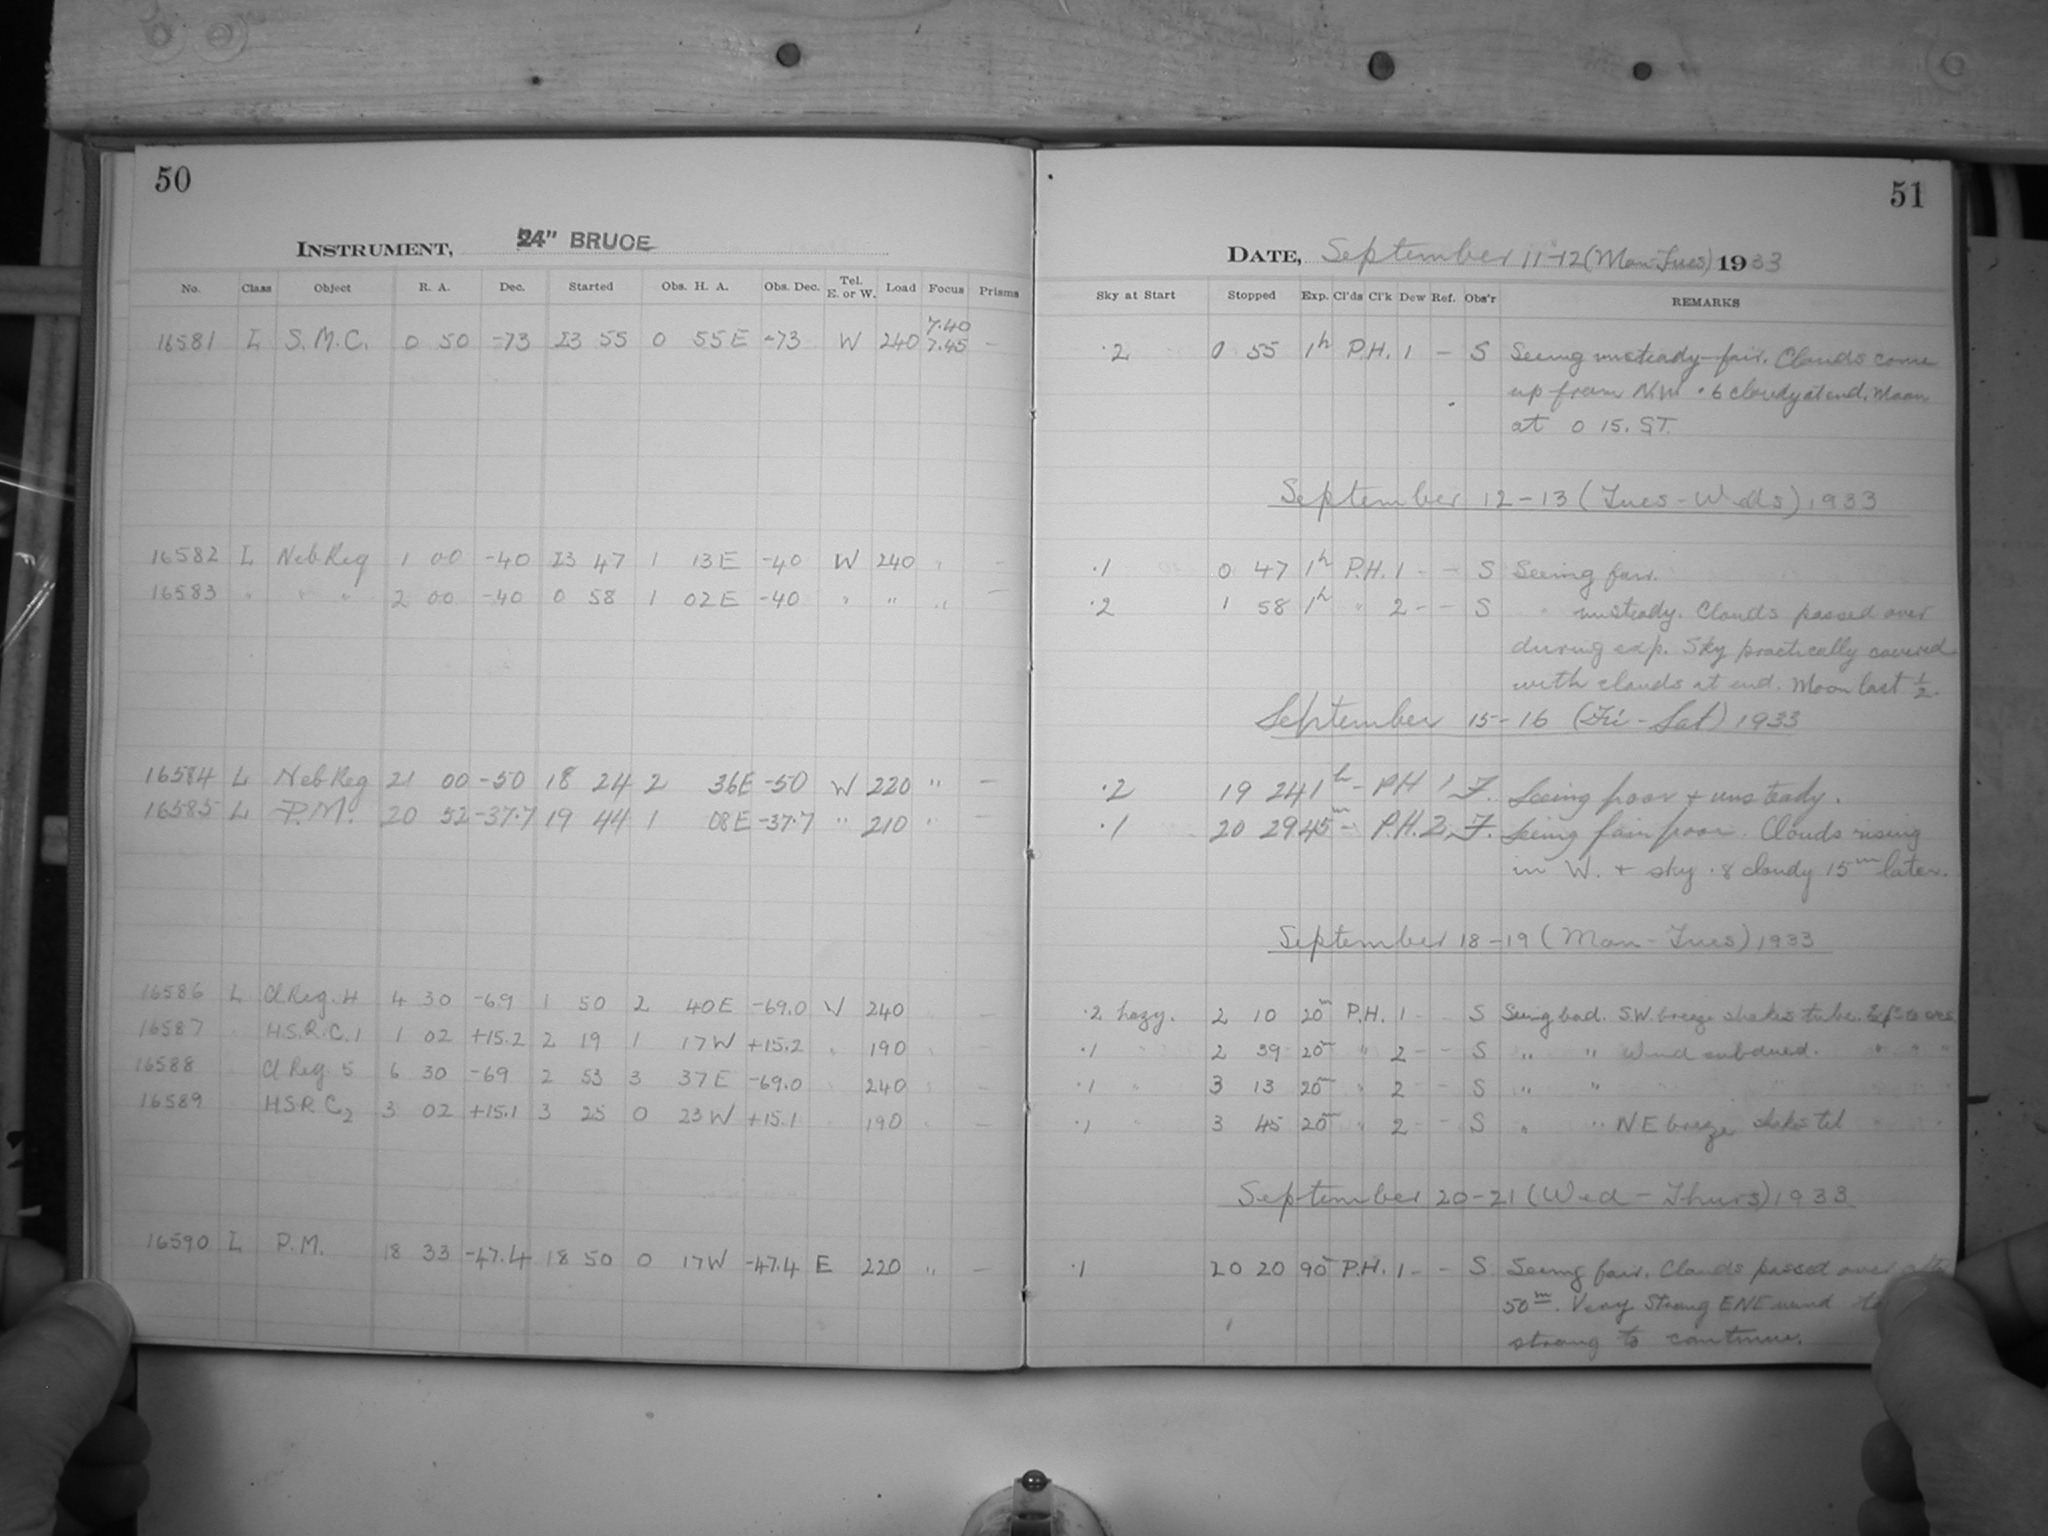 50
INSTRUMENT, 24" BRUCE
No. Class Object R. A. Dec. Started Obs. H. A. Obs. Dec. Tel. E. or W. Load Focus Prisms
16581 L S.M.C. 0 50 -73 23 55 0 55 E -73 W 240 7.40 7.45 -
16582 L Neb Reg 1 00 -40 23 47 1 13 E -40 W 240 " -
16583 " " " 2 00 -40 0 58 1 02 E -40 " " " -
16584 L Neb Reg 21 00 -50 18 24 2 36E -50 W 220 " -
16585 L P.M. 20 52 -37.7 19 44 1 08E -37.7 " 210 " -
16586 L Cl Reg. 4 4 30 -69 1 50 2 40E -69.0 W 240 " -
16587 " H.S.R.C. 1 1 02 +15.2 2 19 1 17W +15.2 " 190 " -
16588 Cl Reg. 5 6 30 -69 2 53 3 37E -69.0 " 240 " -
16589 H.S.R C2 3 02 +15.1 3 25 0 23W +15.1 " 190 " -
16590 L P.M. 18 33 -47.4 18 50 0 17W -47.4 E 220 " -
51
DATE, September 11-12 (Mon-Tues) 1933
Sky at Start Stopped Exp. Cl'ds Cl'k Dew Ref. Obs'r REMARKS
.2 0 55 1h P.H. 1 - S Seeing unsteady-fair. Clouds come
up from N.W. .6 cloudy at end. Moon
at 0 15. S.T.
September 12-13 (Tues-Weds) 1933
.1 0 47 1h P.H. 1 - - S Seeing fair.
.2 1 58 1h " 2 - - S " unsteady. Clouds passed over
during exp. Sky practically covered
with clouds at end. Moon last 1/2.
September 15-16 (Fri-Sat) 1933
.2 19 24 1h - P.H 1 F. Seeing poor + unsteady.
.1 20 29 45m - P.H. 2 F. Seeing fair poor. Clouds rising
in W. + sky .8 cloudy 15m later.
September 18-19 (Mon-Tues) 1933
.2 hazy. 2 10 20m P.H. 1 - S Seeing bad. S.W. breeze shakes tube.
.1 " 2 39 20m " 2 - - S " " Wind subdued. " " "
.1 " 3 13 20m " 2 - - S " "
.1 " 3 45 20m " 2 - - S " " N E breeze shakes tel
September 20-21 (Wed-Thurs) 1933
.1 20 20 90m P.H. 1 - - S Seeing fair. Clouds passed over
50m. Very strong ENE wind
strong to continue.